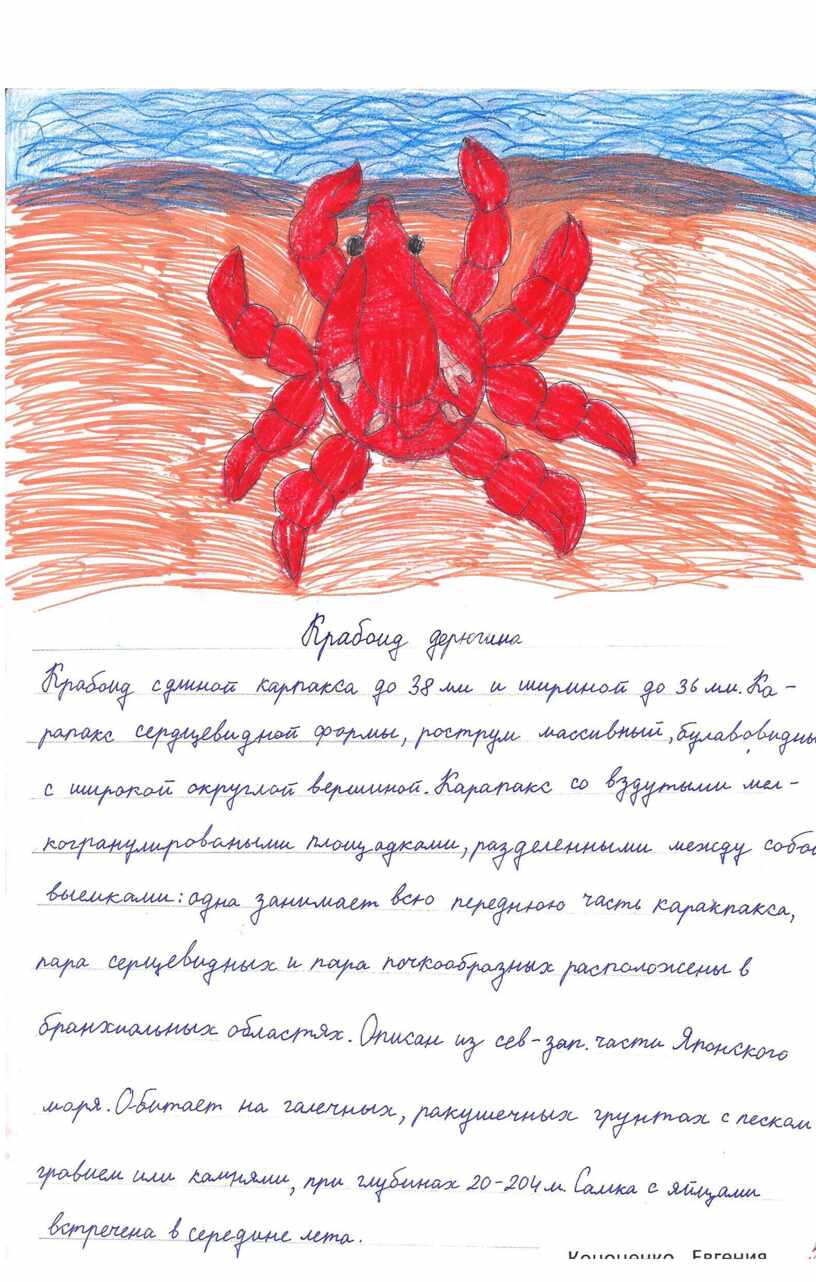 Крабоид дерюгина
Крабоид с длиной карпакса до 38 мм и шириной до 36 мм. Ка-
рапакс сердцевидной формы, рострум массивный, булавовидны
с широкой округлой вершиной. Карапакс со вздутыми мел-
когранулироваными площадками, разделенными между собо
выемками: одна занимает всю переднюю часть каракпакса,
пара серцевидных и пара почкообразных расположены в
бранхиальных областях. Описан из сев-зап. части Японского
моря. Обитает на галечных, ракушечных грунтах с песком
гравием или камнями, при глубинах 20-204 м. Самка с яйцами
встречена в середине лета.
Кононенко Евгения